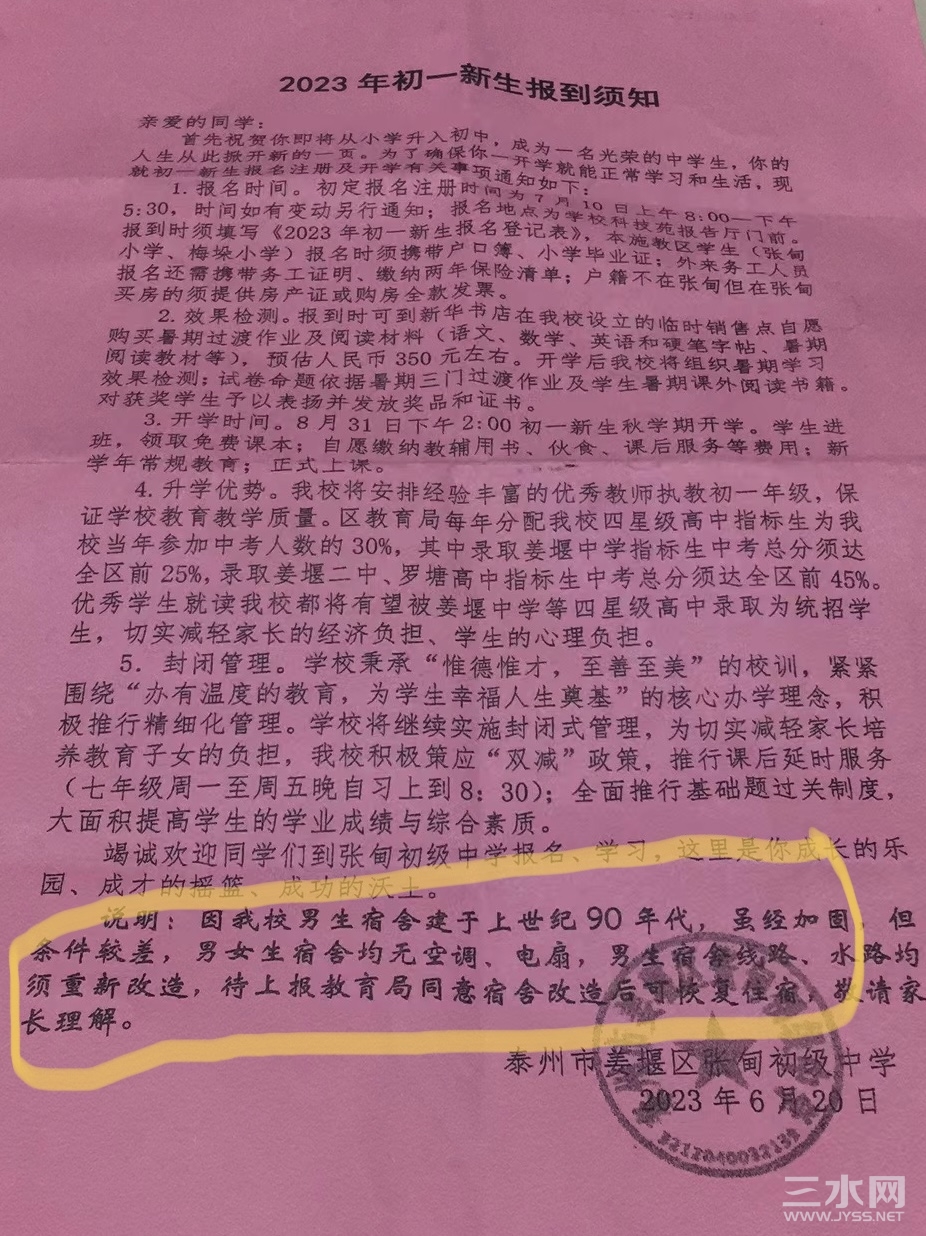 2023年初一新生报到须知
亲爱的同学：
首先祝贺你即将从小学升入初中，成为一名光荣的中学生，你的
人生从此掀开新的一页。为了确保你一开学就能正常学习和生活，现
就初一新生报名注册及开学有关事项通知如下：
1. 报名时间。初定报名注册时间为7月10日上午8:00—下午
5:30，时间如有变动另行通知；报名地点为学校科技苑报告厅门前。
报到时须填写《2023年初一新生报名登记表》，本施教区学生（张甸
小学、梅垛小学）报名时须携带户口簿、小学毕业证；外来务工人员
报名还需携带务工证明、缴纳两年保险清单；户籍不在张甸但在张甸
买房的须提供房产证或购房全款发票。
2. 效果检测。报到时可到新华书店在我校设立的临时销售点自愿
购买暑期过渡作业及阅读材料（语文、数学、英语和硬笔字帖、暑期
阅读教材等），预估人民币350元左右。开学后我校将组织暑期学习
效果检测；试卷命题依据暑期三门过渡作业及学生暑期课外阅读书籍。
对获奖学生予以表扬并发放奖品和证书。
3. 开学时间。8月31日下午2:00初一新生秋学期开学。学生进
班，领取免费课本；自愿缴纳教辅用书、伙食、课后服务等费用；新
学年常规教育；正式上课。
4. 升学优势。我校将安排经验丰富的优秀教师执教初一年级，保
证学校教育教学质量。区教育局每年分配我校四星级高中指标生为我
校当年参加中考人数的30%，其中录取姜堰中学指标生中考总分须达
全区前25%，录取姜堰二中、罗塘高中指标生中考总分须达全区前45%。
优秀学生就读我校都将有望被姜堰中学等四星级高中录取为统招学
生，切实减轻家长的经济负担、学生的心理负担。
5. 封闭管理。学校秉承“惟德惟才，至善至美”的校训，紧紧
围绕“办有温度的教育，为学生幸福人生奠基”的核心办学理念，积
极推行精细化管理。学校将继续实施封闭式管理，为切实减轻家长培
养教育子女的负担，我校积极策应“双减”政策，推行课后延时服务
（七年级周一至周五晚自习上到8：30）；全面推行基础题过关制度，
大面积提高学生的学业成绩与综合素质。
竭诚欢迎同学们到张甸初级中学报名、学习，这里是你成长的乐
园、成才的摇篮、成功的沃土。
说明：因我校男生宿舍建于上世纪90年代，虽经加固，但
条件较差，男女生宿舍均无空调、电扇，男生宿舍线路、水路均
须重新改造，待上报教育局同意宿舍改造后可恢复住宿，敬请家
长理解。
泰州市姜堰区张甸初级中学
2023年6月20日
三水网
WWW.JYSS.NET